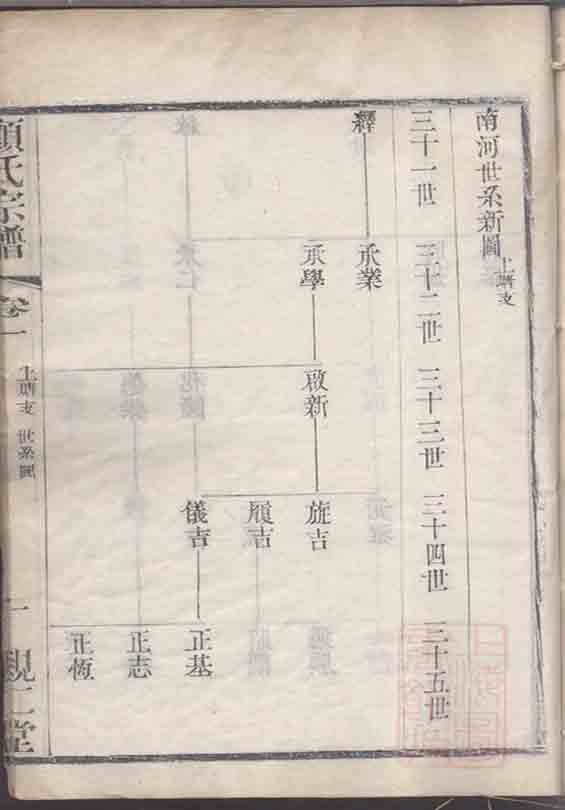 南河世系新圖 上塘支
三十一世 三十二世 三十三世 三十四世 三十五世
繹
承業
承學
啟新
旌吉
履吉
儀吉
正基
正志
正恆
顧氏宗譜 卷一 上塘支 世系圖 一 親仁堂